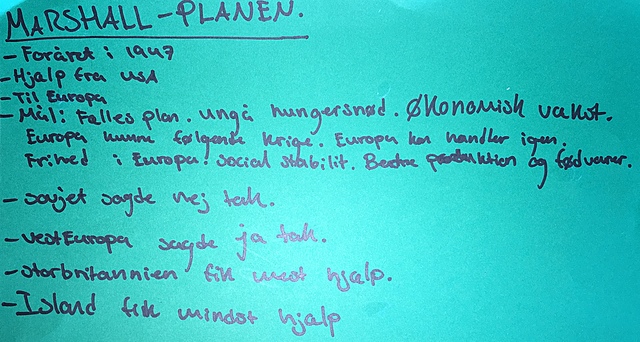 MARSHALL-PLANEN.
- Foråret i 1947
- Hjælp fra USA
- Til Europa
- Mål: Fælles plan. undgå hungersnød. Økonomisk vækst.
Europa kunne følgende krige. Europa kan handler igen.
Frihed i Europa. social stabilit. Bedre produktion og fødvarer.
- sovjet sagde nej tak.
- vestEuropa sagde ja tak.
- storbritannien fik mest hjælp.
- Island fik mindst hjælp